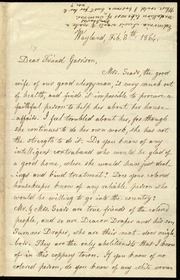 Wayland, Feb. 8th, 1864.
Dear Friend Garrison,
Mrs. Sears, the good
wife of our good clergyman, is very much out
of health, and finds it impossible to procure a
faithful person to help her about her household
affairs. I feel troubled about her, for though
she continues to do her own work, she has not
the strength to do it. Do you know of any
intelligent contraband who would be glad of
a good home, where she would have just deal-
ings and kind treatment? Does your colored
housekeeper know of any reliable person who
would be willing to go into the country?
Mr. & Mrs. Sears are true friends of the colored
people, and so are Deacon Draper and his son
James Draper, who are their next door neigh-
bors. They are the only abolitionists that I know
of in this coppery town. If you know of no
colored person, do you know of any white woman